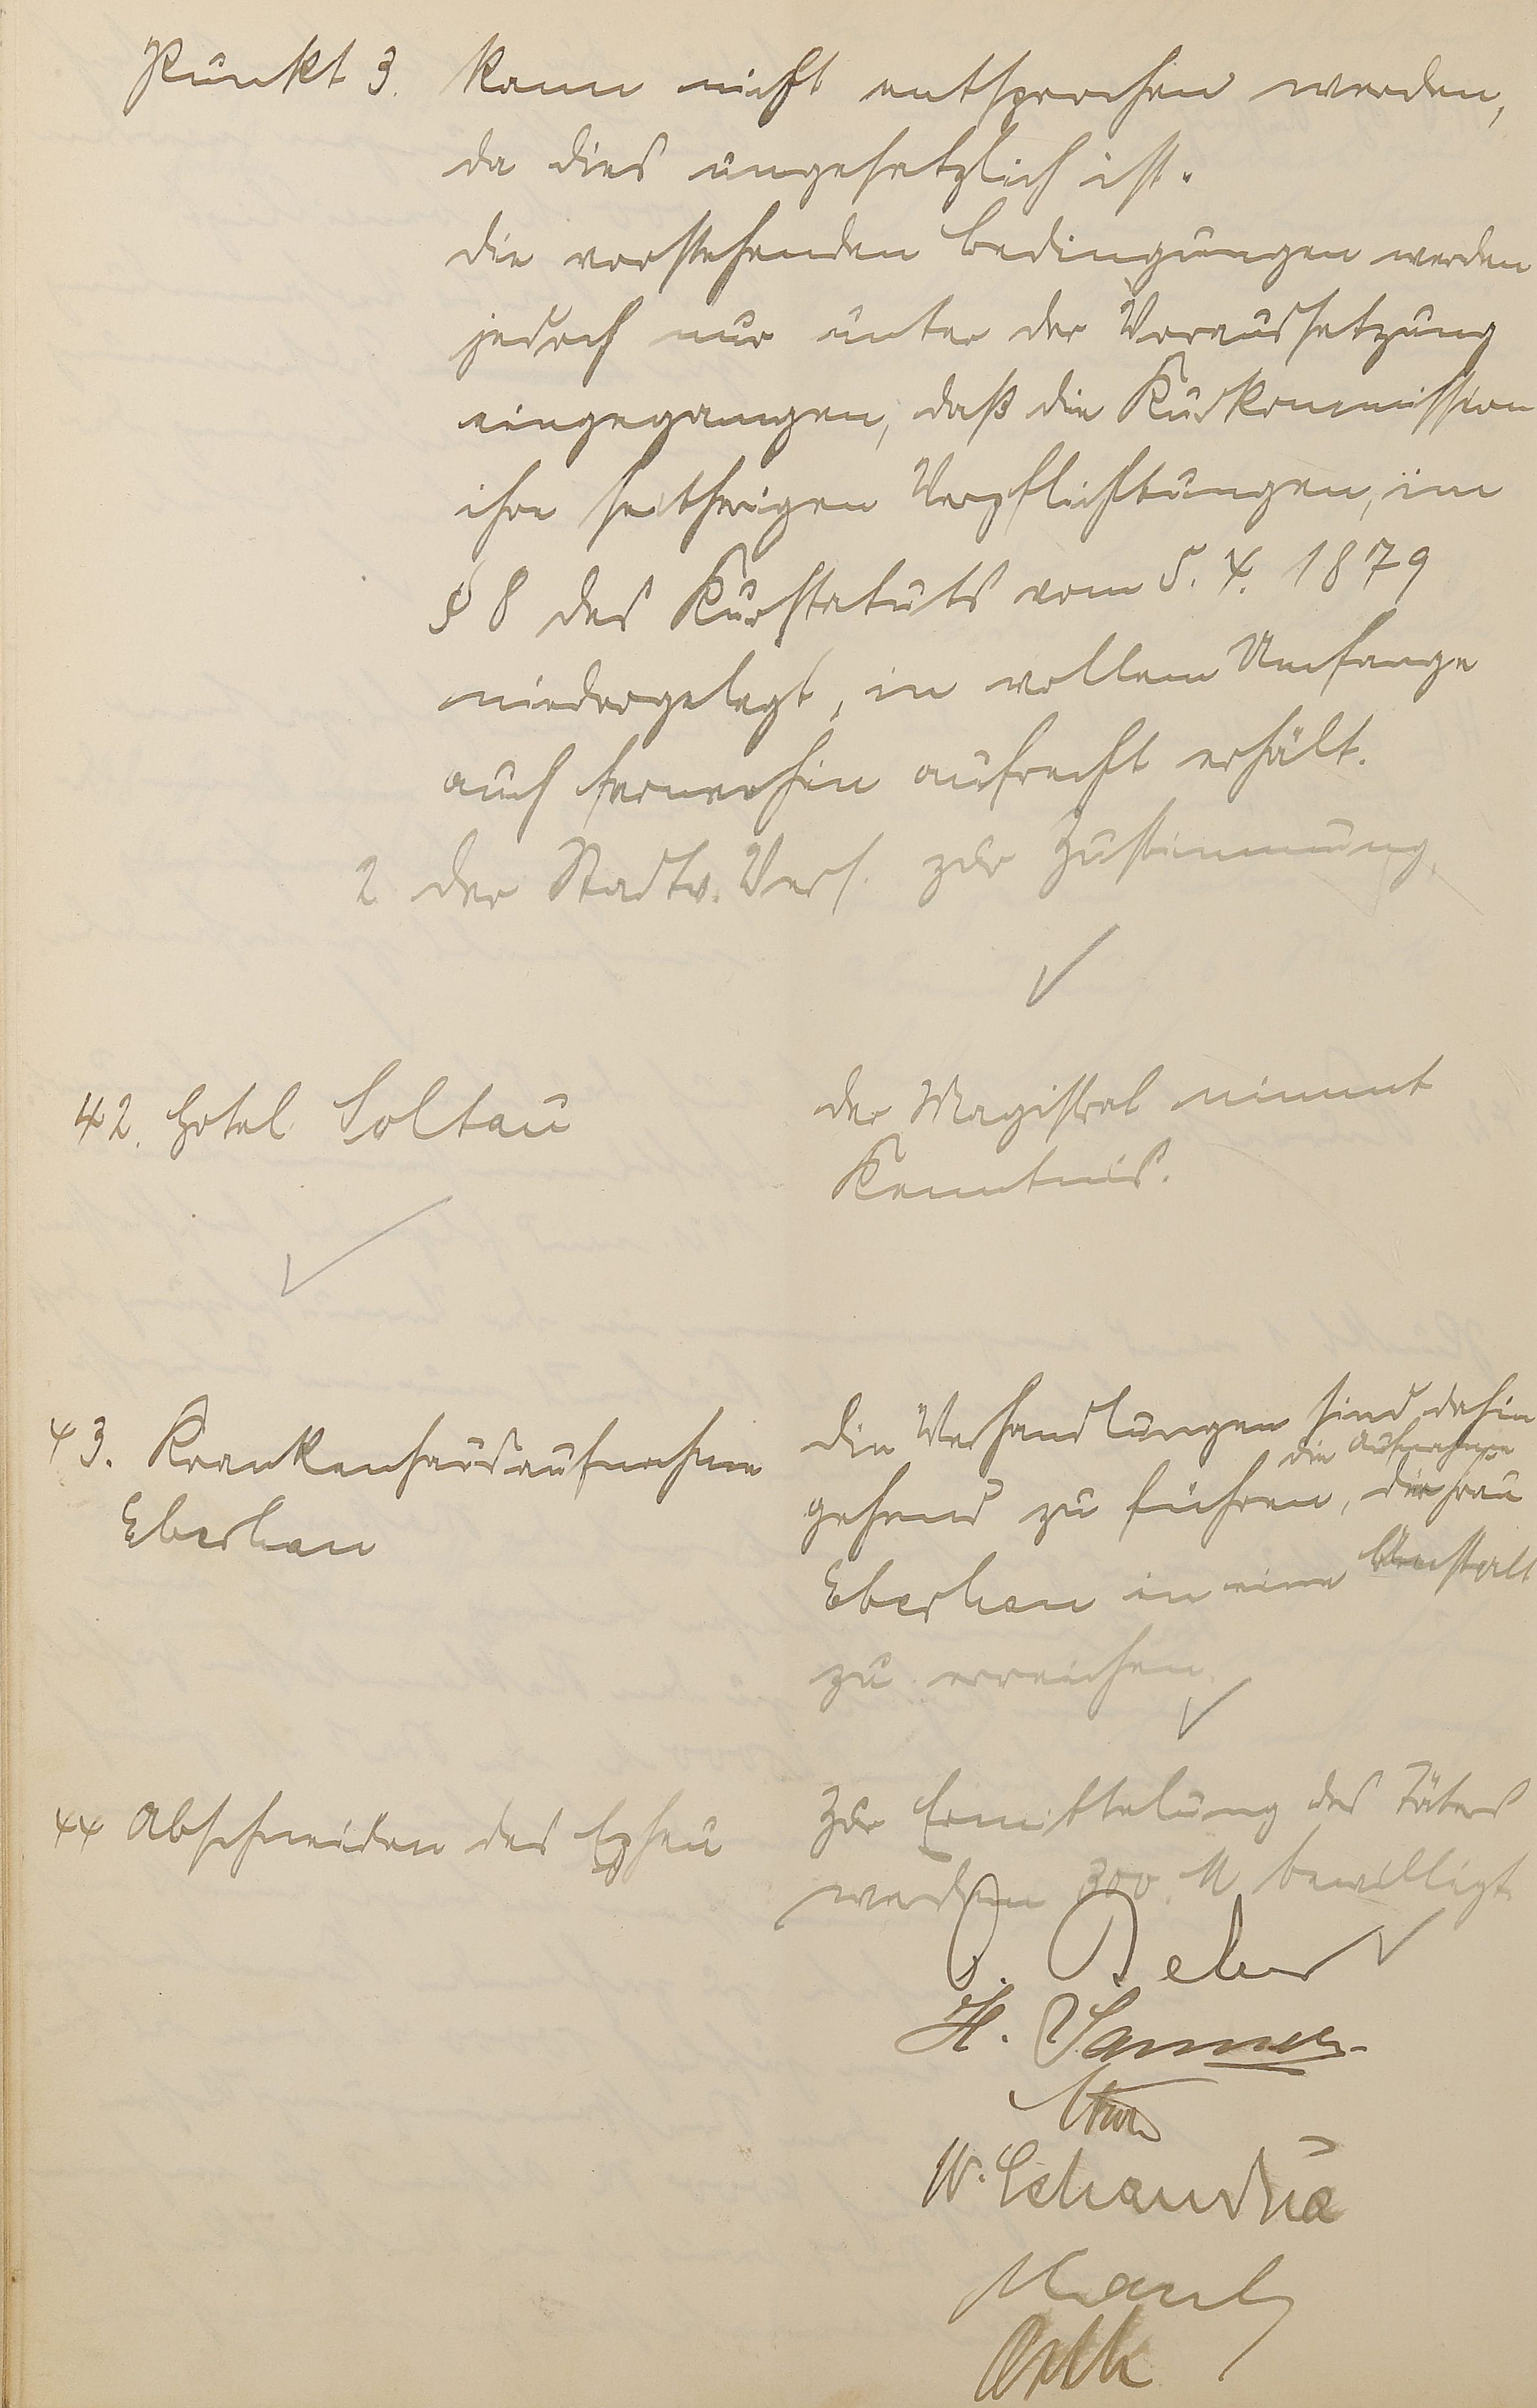 Punkt 3. kann nicht entsprochen werden,
da dies ungesetzlich ist.
die vorstehenden Bedingungen werden
jedoch nur unter der Voraussetzung
eingegangen, daß die Kurkommission
ihre seitherigen Verpflichtungen, im
§ 8 des Kurstatuts vom 5. 4. 1879
niedergelegt, in vollem Umfange
auch fernerhin aufrecht erhält.
2 der Stadtv. Vers. zur Zustimmung.
42. Hotel Soltau
der Magistrat nimmt
Kenntnis.
43. Krankenhausaufnahme
Eberhan
die Verhandlungen sind dahin
die Aufnahme
gehend zu führen, der Frau
Eberhan in eine Anstalt
zu erreichen.
44 Abschneiden des Epheu
Zur Ermittelung des Täters
werden 300 M bewilligt
H.
W.
Orth